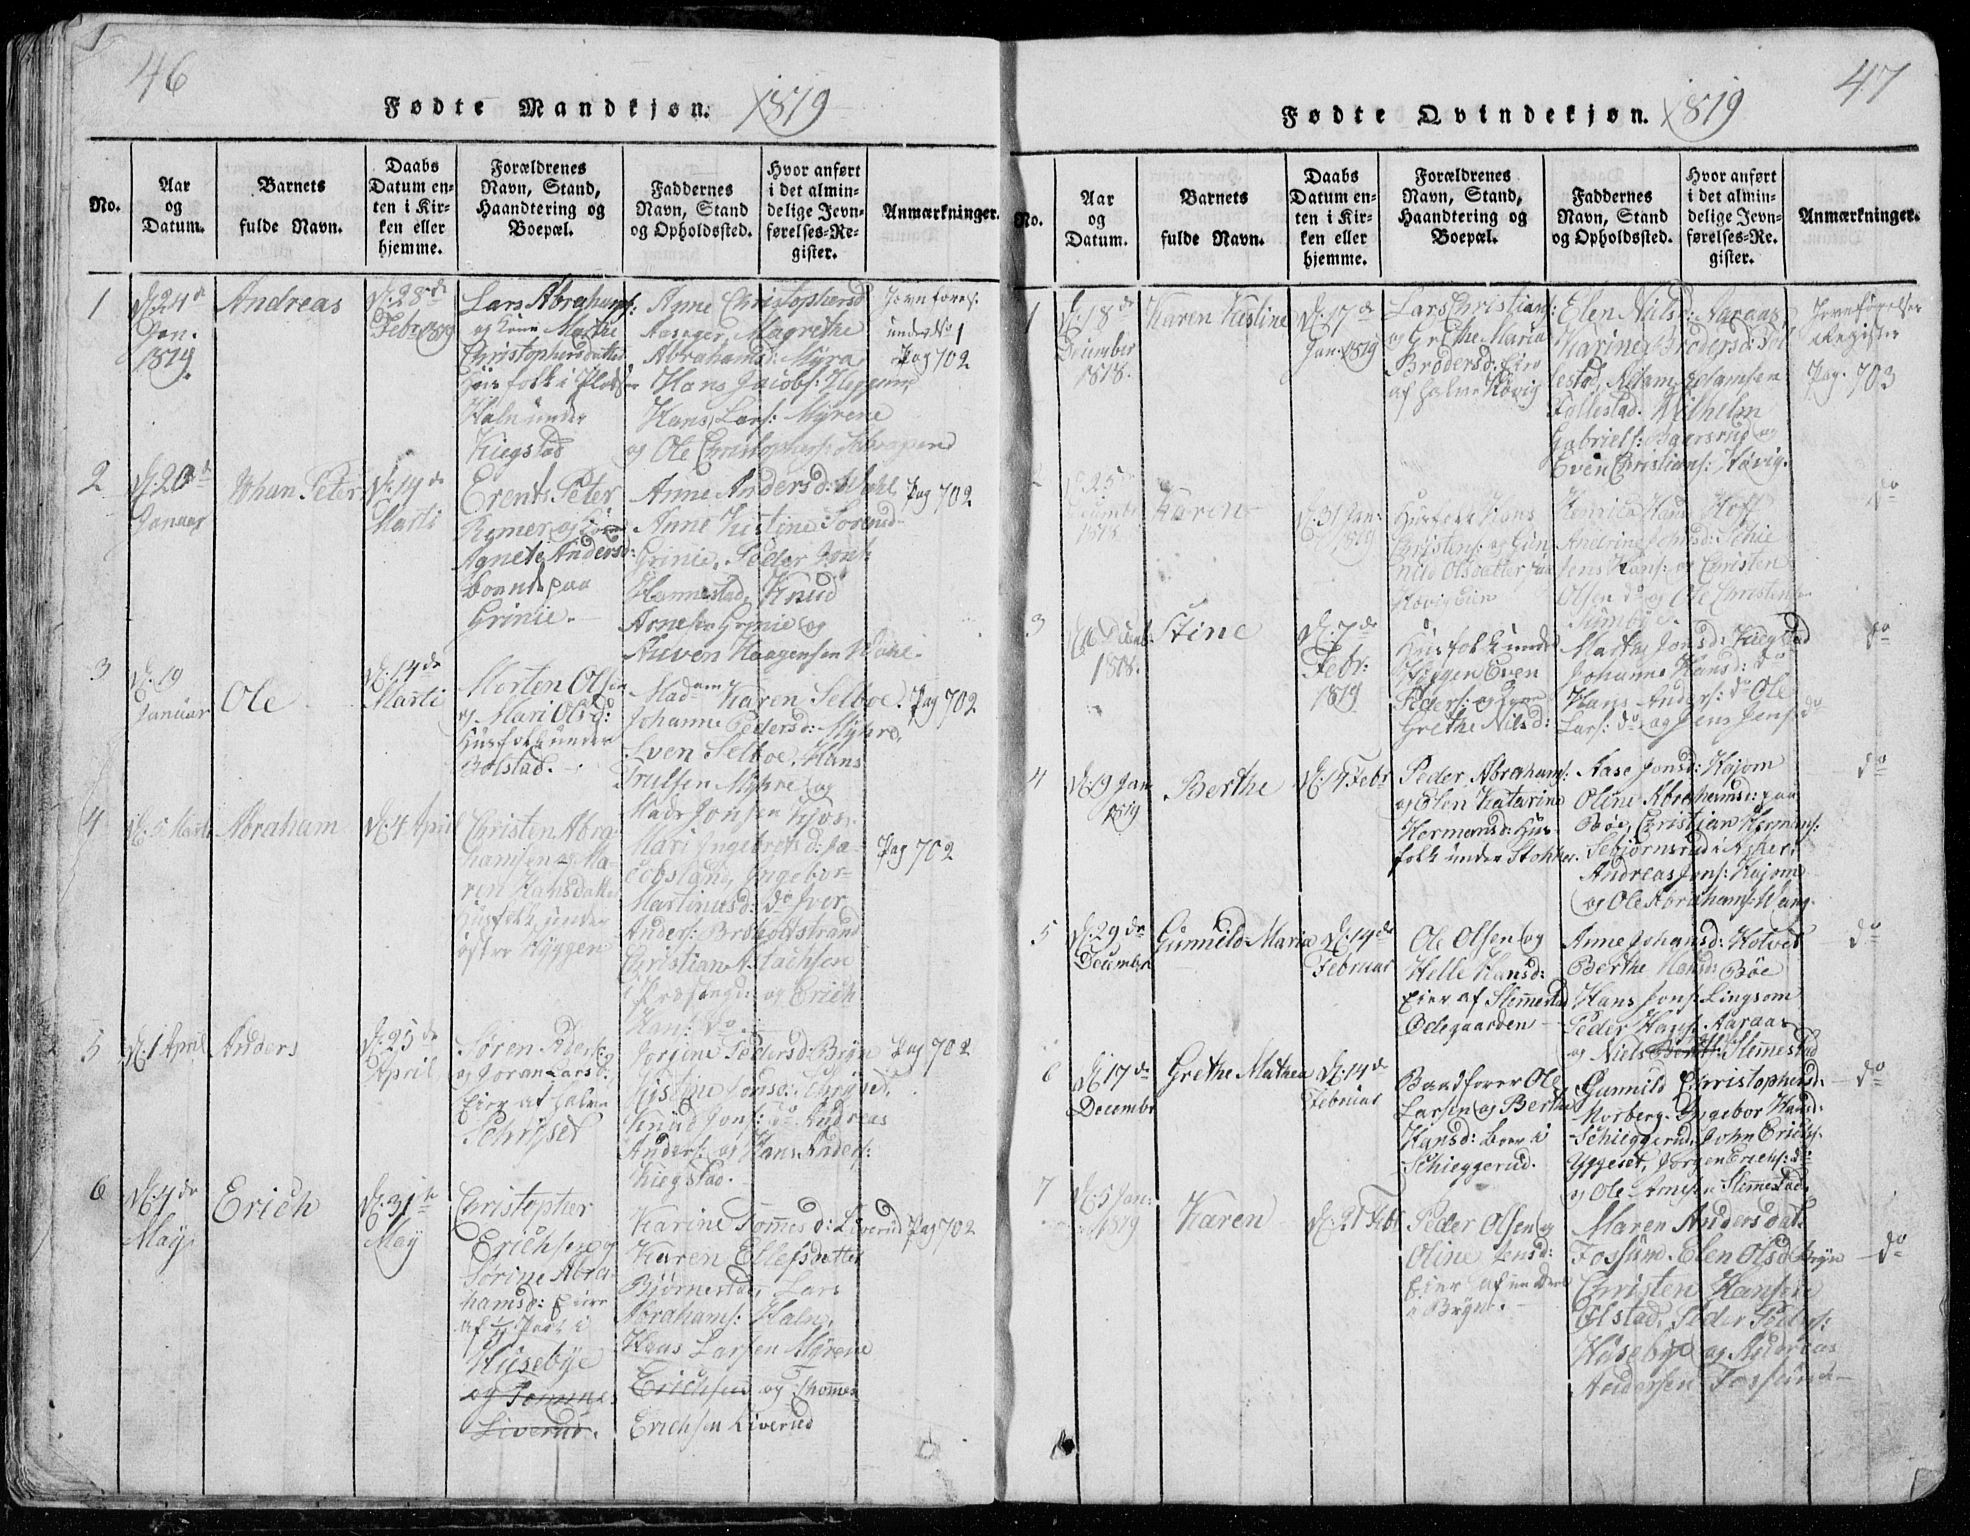 46
Fødte Mandkjøn. 1819
No.
Aar
og
Datum.
Barnets
fulde Navn.
Daabs
Datum en-
ten i Kir-
ken eller
hjemme.
Forældrenes
Navn, Stand,
Haandtering og
Boepæl.
Faddernes
Navn, Stand
og Opholdssted.
Hvor anført
i det almin-
delige Jevn-
førelses-Re-
gister.
Anmærkninger.
1
D. 24de
Jan.
1819.
Andreas
D. 28de
Febr 1819
Lars Abrahams:
og Kone Marthe
Christophersdatter
Huusfolk i Pladsen
Haln under
Kiegstad
Anne Christophersd
Magrethe
Abrahamsd: Myra
Hans Jacobs:
Hans Lars: Myrene
og Ole Christophers:
Jevnførels:
under No 1
Pag 702
2
D. 20de
Januar
Johan Peter
D. 14de
Marti
Peter
Rømer og Kone
Agnete Andersd:
boende paa
Grinie.
Anne Andersd: Wahl
Anne Kistine
Grinie, Peder Jons:
Hannestad, Knud
Arnesen Grinie og
Haagensen Wahl.
Pag 702
3
D. 19
Januar
Ole
D. 14de
Marti
Morten Olsen
og Mari Olsd:
Husfolk under
Bolstad.
Madam Karen Selboe.
Johanne Pedersd: Myhre,
Sven Selboe, Hans
Trulsen Myhre og
Mads Jonsen
Pag 702
4
D. 5 Marti
Abraham
D. 4 April
Christen Abra-
hamsen og Ma-
ren Hansdatter
Husfolk under
østre Hyggen
Mari Ingebretsd: Ja-
cobsland, Ingebor-
Martinusd: do Iver
Anders: Brøholtstrand
Christian
og Erich
Hans: do.
Pag 702
5
D. 1 April
Anders
D. 25de
April
Søren Peders:
og Joran Larsd:
Eier af halve
Jorjine Pedersd: Bryn
Kistine Jonsd:
Knud Jons: do Andreas
Anders: og Hans Anders:
Kiegstad.
Pag 702
6
D. 4de
May
Erich
D. 31te
May
Christopher
Erichsen og
Sørine Abra-
hamsd: Eiere
af ½ Part i
Husebye
og Tommes
Liverud.
Karine Tommesd: Liverud
Karen Ellefsdatter
Bjørnestad, Lars
Abrahams: Haln,
Hans Larsen Myrene
Erichsen og Thommes
Erichsen Liverud
Pag 702
47
Fødte Qvindekjøn. 1819
No.
Aar
og
Datum.
Barnets
fulde Navn.
Daabs
Datum en-
ten i Kir-
ken eller
hjemme.
Forældrenes
Navn, Stand,
Haandtering og
Boepæl.
Faddernes
Navn, Stand
og Opholdssted.
Hvor anført
i det almin-
delige Jevn-
førelses-Re-
gister.
Anmærkninger.
1
D. 18de
December
1818.
Karen Kistine
D. 17de
Jan: 1819
Lars Christians:
og Grethe Maria
Brodersd: Eier
af halve Høvig
Elen Nilsd: Aaraas,
Karine Brodersd:
Adam Adamsen
Follestad. Wilhelm
Gabriels: og
Even Christians: Høvig.
Jevnførelses
Register
Pag. 703
2
D. 25de
December
1818
Karen
D. 31 Jan:
1819
Husfolk Hans
Christens: og Gun-
nild Olsdatter
Høvig Eie
Hoff
Andrine
Jens Hans: og Christen
Olsen do og Ole Christens:
do
3
1818.
Stine
D. 7de
Febr:
1819
Husfolk under
Hyggen Even
Peders: og
Grethe Nilsd:
Marthe Jonsd: Kiegstad
Johanne Hansd: do
Hans Anders: do Ole
Lars: do og Jens Jens: do
do
4
D. 19 Jan
1819
Berthe
D. 14 Febr
Peder Abrahams:
og Elen Katarina
Hermansd: Hus-
folk under Stokker.
Aase Jonsd: Kajom
Oline Abrahamsd: paa
Bøe, Christian Hermans:
Sebjørnsrud i Asker,
Andreas Jens: Kajom
og Ole Abrahams: Wang.
do
5
D. 29de
Decembr
Gunnild Maria
D. 14de
Februar
Ole Olsen og
Helle Hansd:
Eier af Slemmestad
Ødegaarden
Anne Johansd: Holved
Berthe Hansd: Bøe
Hans Jons: Lingsom
Peder Hans: Aaraas
og Niels Slemmestad
do
6
D. 17de
Decembr
Grethe Mathea
D. 14de
Februar
Baadfører Ole
Larsen og Berthe
Hansd: boer i
Schieggerud.
Gunnild Christophersd:
Morberg. Ingebor Hansd:
Schieggerud, John Erichs:
Yggeset, Jørgen Erichs: do
og Ole Arnesen Slemmestad.
do
7
D. 5 Jan:
1819
Karen
D. 21 Febr
Peder Olsen og
Oline Jensd:
Eier af en Deel
i Bryn.
Maren Andersdat.
Fossum. Elen Olsd Bryn
Christen Hansen
Ølstad, Peder Peders:
Husebye og Andreas
Andersen Fossum
do